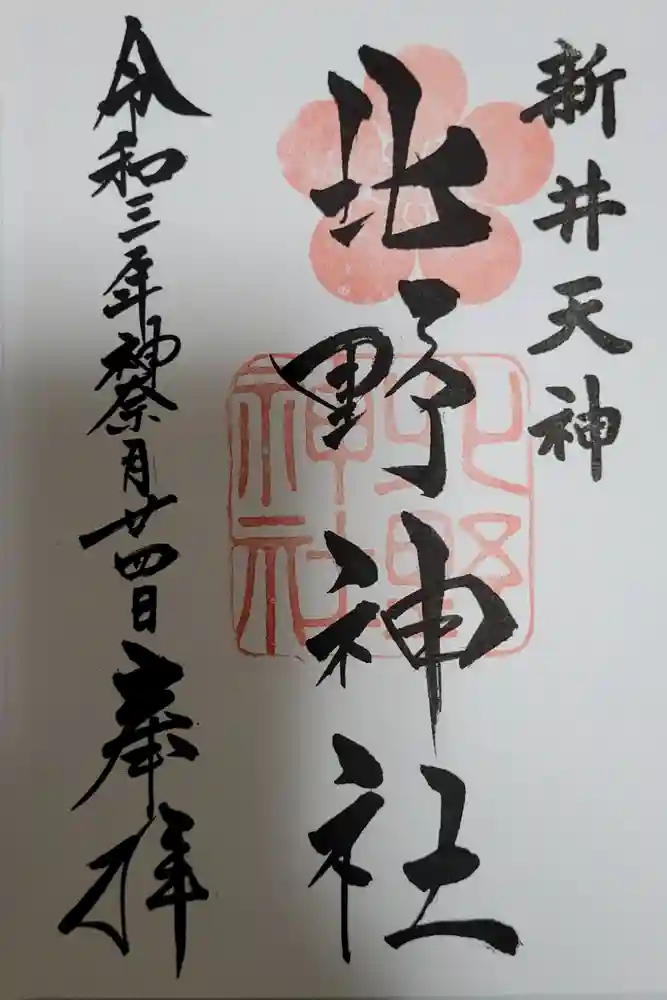 新井天神
北野神社
北野
神社
令和三年神奈月廿四日
奉拝